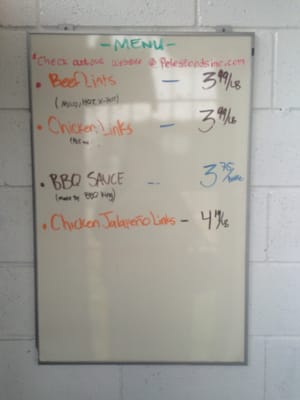 - MENU -
* Check out our website @
• Beef Links — 3.99/LB
(Mild, Hot, X-Hot)
• Chicken Links — 3.99/LB
• BBQ SAUCE -- 3.75
(made by BBQ King)
• Chicken Jalapeño Links - 4